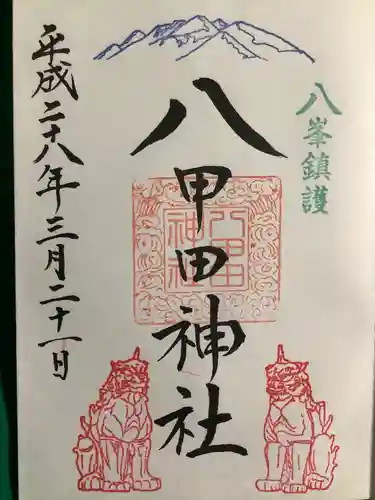 八峯鎮護
八甲田神社
八甲田神社
平成二十八年三月二十一日